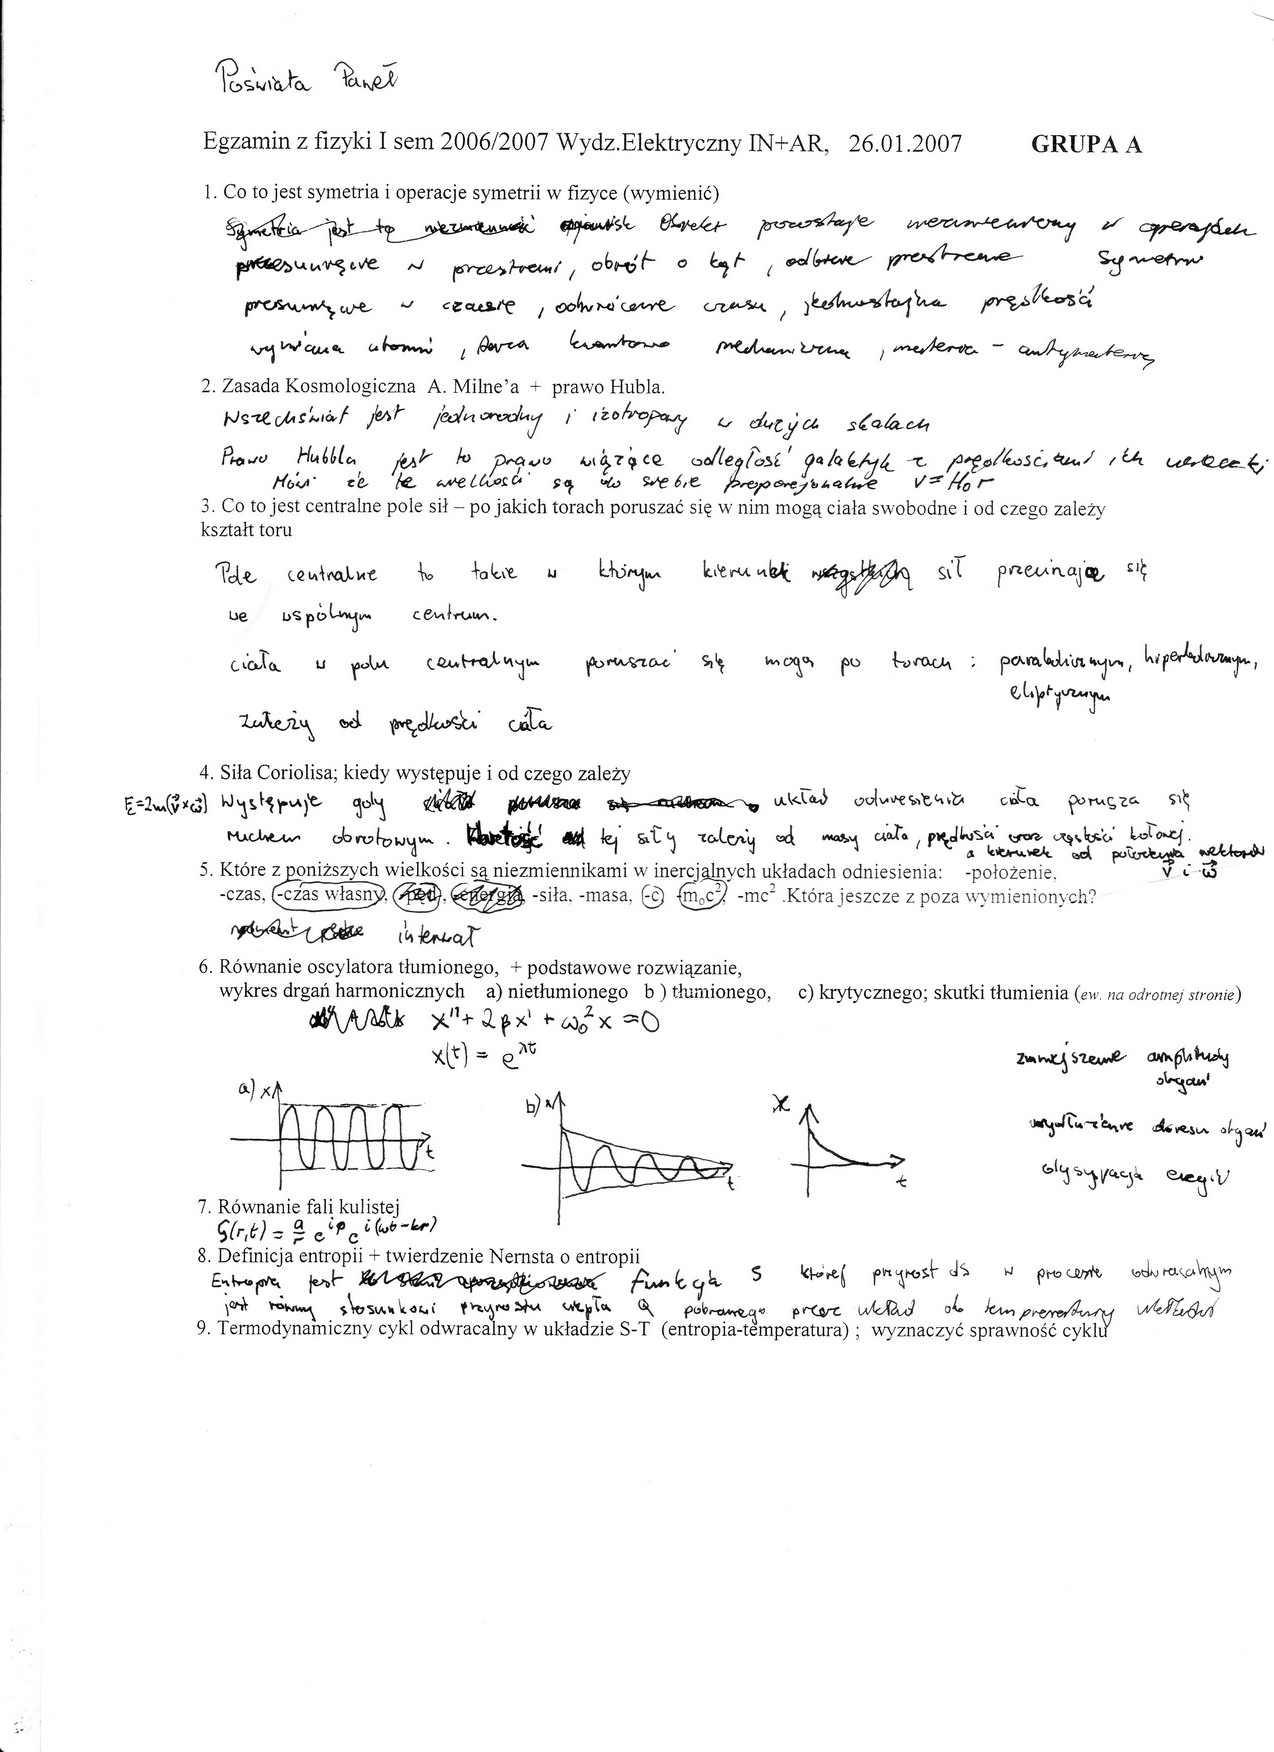 Poświata Paweł
Egzamin z fizyki I sem 2006/2007 Wydz.Elektryczny IN+AR, 26.01.2007 GRUPA A
1. Co to jest symetria i operacje symetrii w fizyce (wymienić)
Symetria jest to niezmienność Obiekt pozostaje niezmieniony w operacjach
przesunięcie w przestrzeni, obrót o kąt, odbicie przestrzenne Symetrii
przesunięcie w czasie, odwrócenie czasu, jednostajna prędkość
wymiana atomów, kwantowo mechaniczna, materia - antymateria
2. Zasada Kosmologiczna A. Milne'a + prawo Hubla.
Wszechświat jest jednorodny i izotropowy w dużych skalach
Prawo Hubbla jest to prawo wiążące odległość galaktyk z prędkościami ich ucieczki
Mówi że te wielkości są do siebie proporcjonalne V = H₀ r
3. Co to jest centralne pole sił – po jakich torach poruszać się w nim mogą ciała swobodne i od czego zależy
kształt toru
Pole centralne to takie w którym kierunki sił przecinają się
we wspólnym centrum.
ciała w polu centralnym poruszać się mogą po torach : parabolicznym, hiperbolicznym,
eliptycznym
Zależy od prędkości ciała
4. Siła Coriolisa; kiedy występuje i od czego zależy
F=2m(v⃗×ω⃗) Występuje gdy układ odniesienia ciała porusza się
ruchem obrotowym. Wartość tej siły zależy od masy ciała, prędkości oraz częstości kołowej.
a kierunek od położenia wektorów
5. Które z poniższych wielkości są niezmiennikami w inercjalnych układach odniesienia: -położenie, v⃗ i ω⃗
-czas, -czas własny, -pęd, -energia, -siła, -masa, -c, -m₀c², -mc² .Która jeszcze z poza wymienionych?
interwał
6. Równanie oscylatora tłumionego, + podstawowe rozwiązanie,
wykres drgań harmonicznych a) nietłumionego b ) tłumionego, c) krytycznego; skutki tłumienia (ew. na odrotnej stronie)
x'' + 2βx' + ω₀²x = 0
x(t) = e^λt
zmniejszenie amplitudy
drgań
a) x t
b) x t
x t
wydłużenie okresu drgań
dysypacja energii
7. Równanie fali kulistej
ζ(r,t) = a/r e^iφ e^i(ωt-kr)
8. Definicja entropii + twierdzenie Nernsta o entropii
Entropia jest funkcja S której przyrost dS w procesie odwracalnym
jest równy stosunkowi przyrostu ciepła Q pobranego przez układ do temperatury układu
9. Termodynamiczny cykl odwracalny w układzie S-T (entropia-temperatura) ; wyznaczyć sprawność cyklu